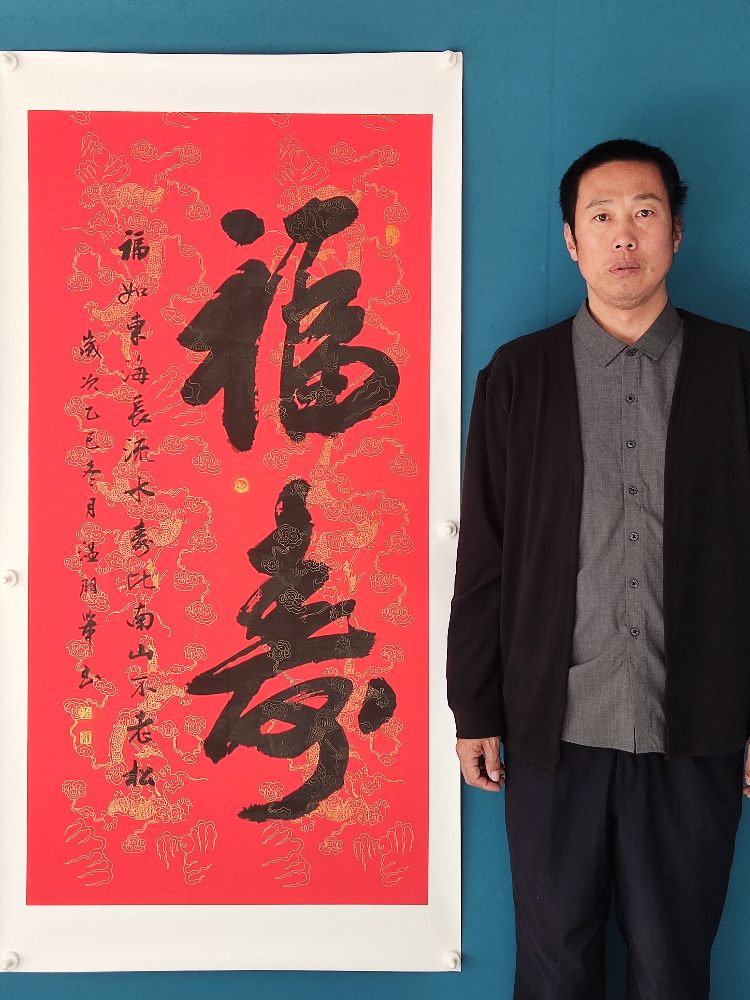 福寿
福如東海長流水寿比南山不老松
歲次乙巳冬月温举书